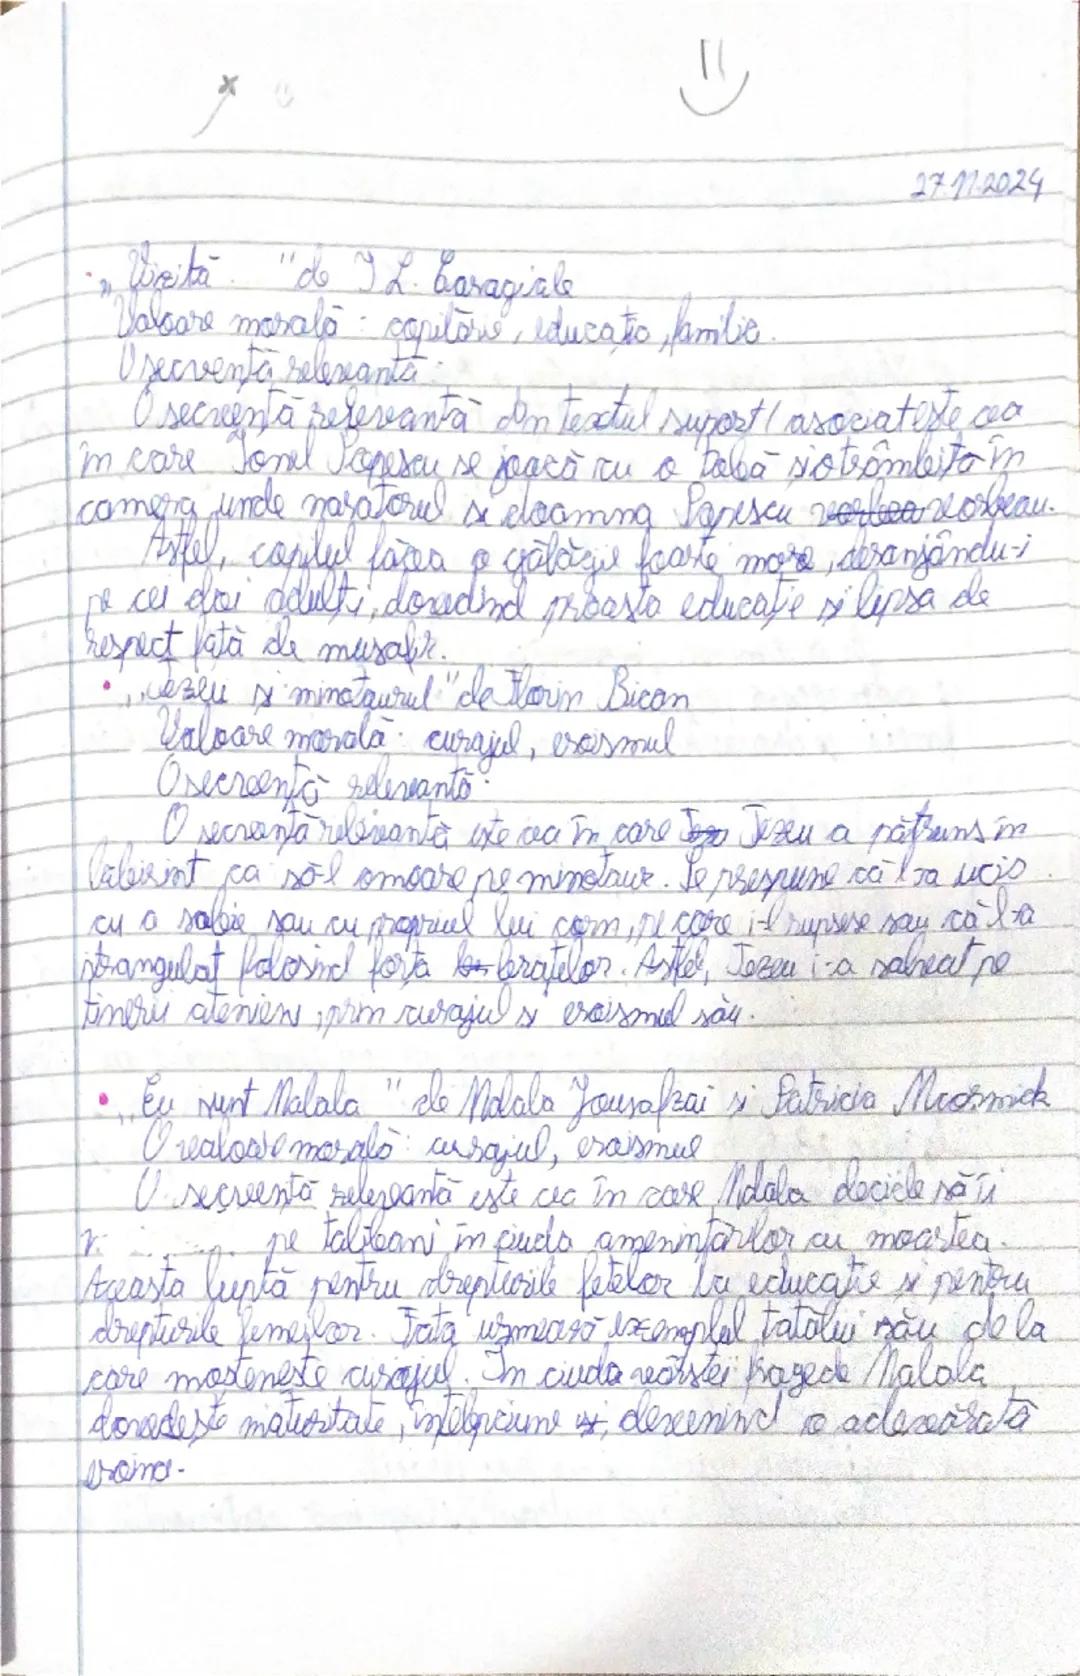 27.11.2024
„Vizită. " de I L. Caragiale
Valoare morală: copilărie, educație, familie.
O secvență relevantă:
O secvență relevantă din textul suport / asociat este cea
în care Ionel Popescu se joacă cu o tobă și o trâmbiță în
camera unde naratorul și doamna Popescu vorbeau.
Astfel, copilul făcea o gălăgie foarte mare, deranjându-i
pe cei doi adulți, dovedind proasta educație și lipsa de
respect față de musafir.
• „Tezeu și minotaurul" de Florin Bican
Valoare morală: curajul, eroismul
O secvență relevantă:
O secvență relevantă este cea în care Tezeu a pătruns în
labirint ca să-l omoare pe minotaur. Se presupune că l-a ucis
cu o sabie sau cu propriul lui corn, pe care i-l rupsese sau că l-a
strangulat folosind forța brațelor. Astfel, Tezeu i-a salvat pe
tinerii atenieni, prin curajul și eroismul său.
• „Eu sunt Malala" de Malala Yousafzai și Patricia Mcormick
O valoare morală: curajul, eroismul
O secvență relevantă este cea în care Malala decide să îi
pe talibani în ciuda amenințărilor cu moartea.
Aceasta luptă pentru drepturile fetelor la educație și pentru
drepturile femeilor. Fata urmează exemplul tatălui său de la
care moștenește curajul. În ciuda vârstei fragede Malala
dovedește maturitate, înțelepciune și, devenind o adevărată
eroină.